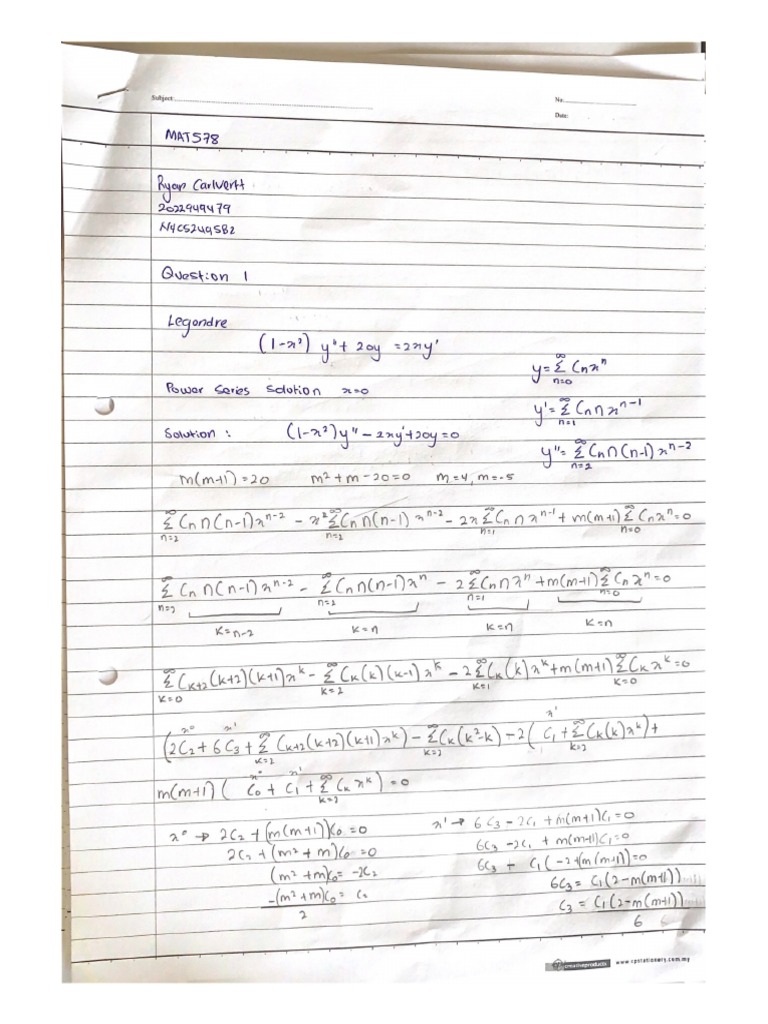 Subject:
No:
Date:
MAT578
Ryan Carlvertt
2022949479
N4CS2495B2
Question 1
Legondre
(1-x²) y"+ 20y = 2xy'
Power Series Solution x=0
y = Σ_{n=0}^∞ Cₙxⁿ
y' = Σ_{n=1}^∞ Cₙn xⁿ⁻¹
Solution : (1-x²)y" - 2xy' + 20y = 0
y" = Σ_{n=2}^∞ Cₙn(n-1)xⁿ⁻²
m(m+1) = 20 m² + m - 20 = 0 m = 4, m = -5
Σ_{n=2}^∞ Cₙn(n-1)xⁿ⁻² - x² Σ_{n=2}^∞ Cₙn(n-1)xⁿ⁻² - 2x Σ_{n=1}^∞ Cₙn xⁿ⁻¹ + m(m+1) Σ_{n=0}^∞ Cₙxⁿ = 0
Σ_{n=2}^∞ Cₙn(n-1)xⁿ⁻² - Σ_{n=2}^∞ Cₙn(n-1)xⁿ - 2 Σ_{n=1}^∞ Cₙn xⁿ + m(m+1) Σ_{n=0}^∞ Cₙxⁿ = 0
k=n-2 k=n k=n k=n
Σ_{k=0}^∞ C_{k+2}(k+2)(k+1)xᵏ - Σ_{k=2}^∞ Cₖ(k)(k-1)xᵏ - 2 Σ_{k=1}^∞ Cₖ(k)xᵏ + m(m+1) Σ_{k=0}^∞ Cₖxᵏ = 0
x⁰ x' x'
(2C₂ + 6C₃ + Σ_{k=2}^∞ C_{k+2}(k+2)(k+1)xᵏ) - Σ_{k=2}^∞ Cₖ(k²-k) - 2(C₁ + Σ_{k=2}^∞ Cₖ(k)xᵏ) +
x⁰ x'
m(m+1) ( C₀ + C₁ + Σ_{k=2}^∞ Cₖxᵏ) = 0
x⁰ → 2C₂ + (m(m+1))C₀ = 0
2C₂ + (m² + m)C₀ = 0
(m² + m)C₀ = -2C₂
-(m² + m)C₀ / 2 = C₂
x' → 6C₃ - 2C₁ + m(m+1)C₁ = 0
6C₃ - 2C₁ + m(m+1)C₁ = 0
6C₃ + C₁(-2 + (m(m+1))) = 0
6C₃ = C₁(2 - m(m+1))
C₃ = C₁(2 - m(m+1)) / 6
creativeproducts www.cpstationery.com.my